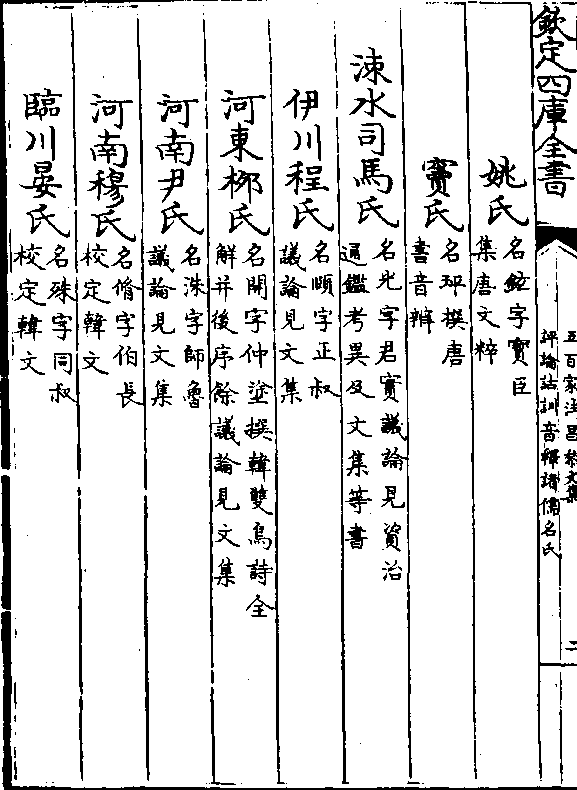 欽定四庫全書
五百家注昌黎文集
評論詁訓音釋諸儒名氏
二
姚氏
名鉉字寶臣
集唐文粹
竇氏
名苹撰唐
書音辨
涑水司馬氏
名光字君實議論見資治
通鑑考異及文集等書
伊川程氏
名頤字正叔
議論見文集
河東柳氏
名開字仲塗撰韓雙鳥詩全
解并後序餘議論見文集
河南尹氏
名洙字師魯
議論見文集
河南穆氏
名脩字伯長
校定韓文
臨川晏氏
名殊字同叔
校定韓文